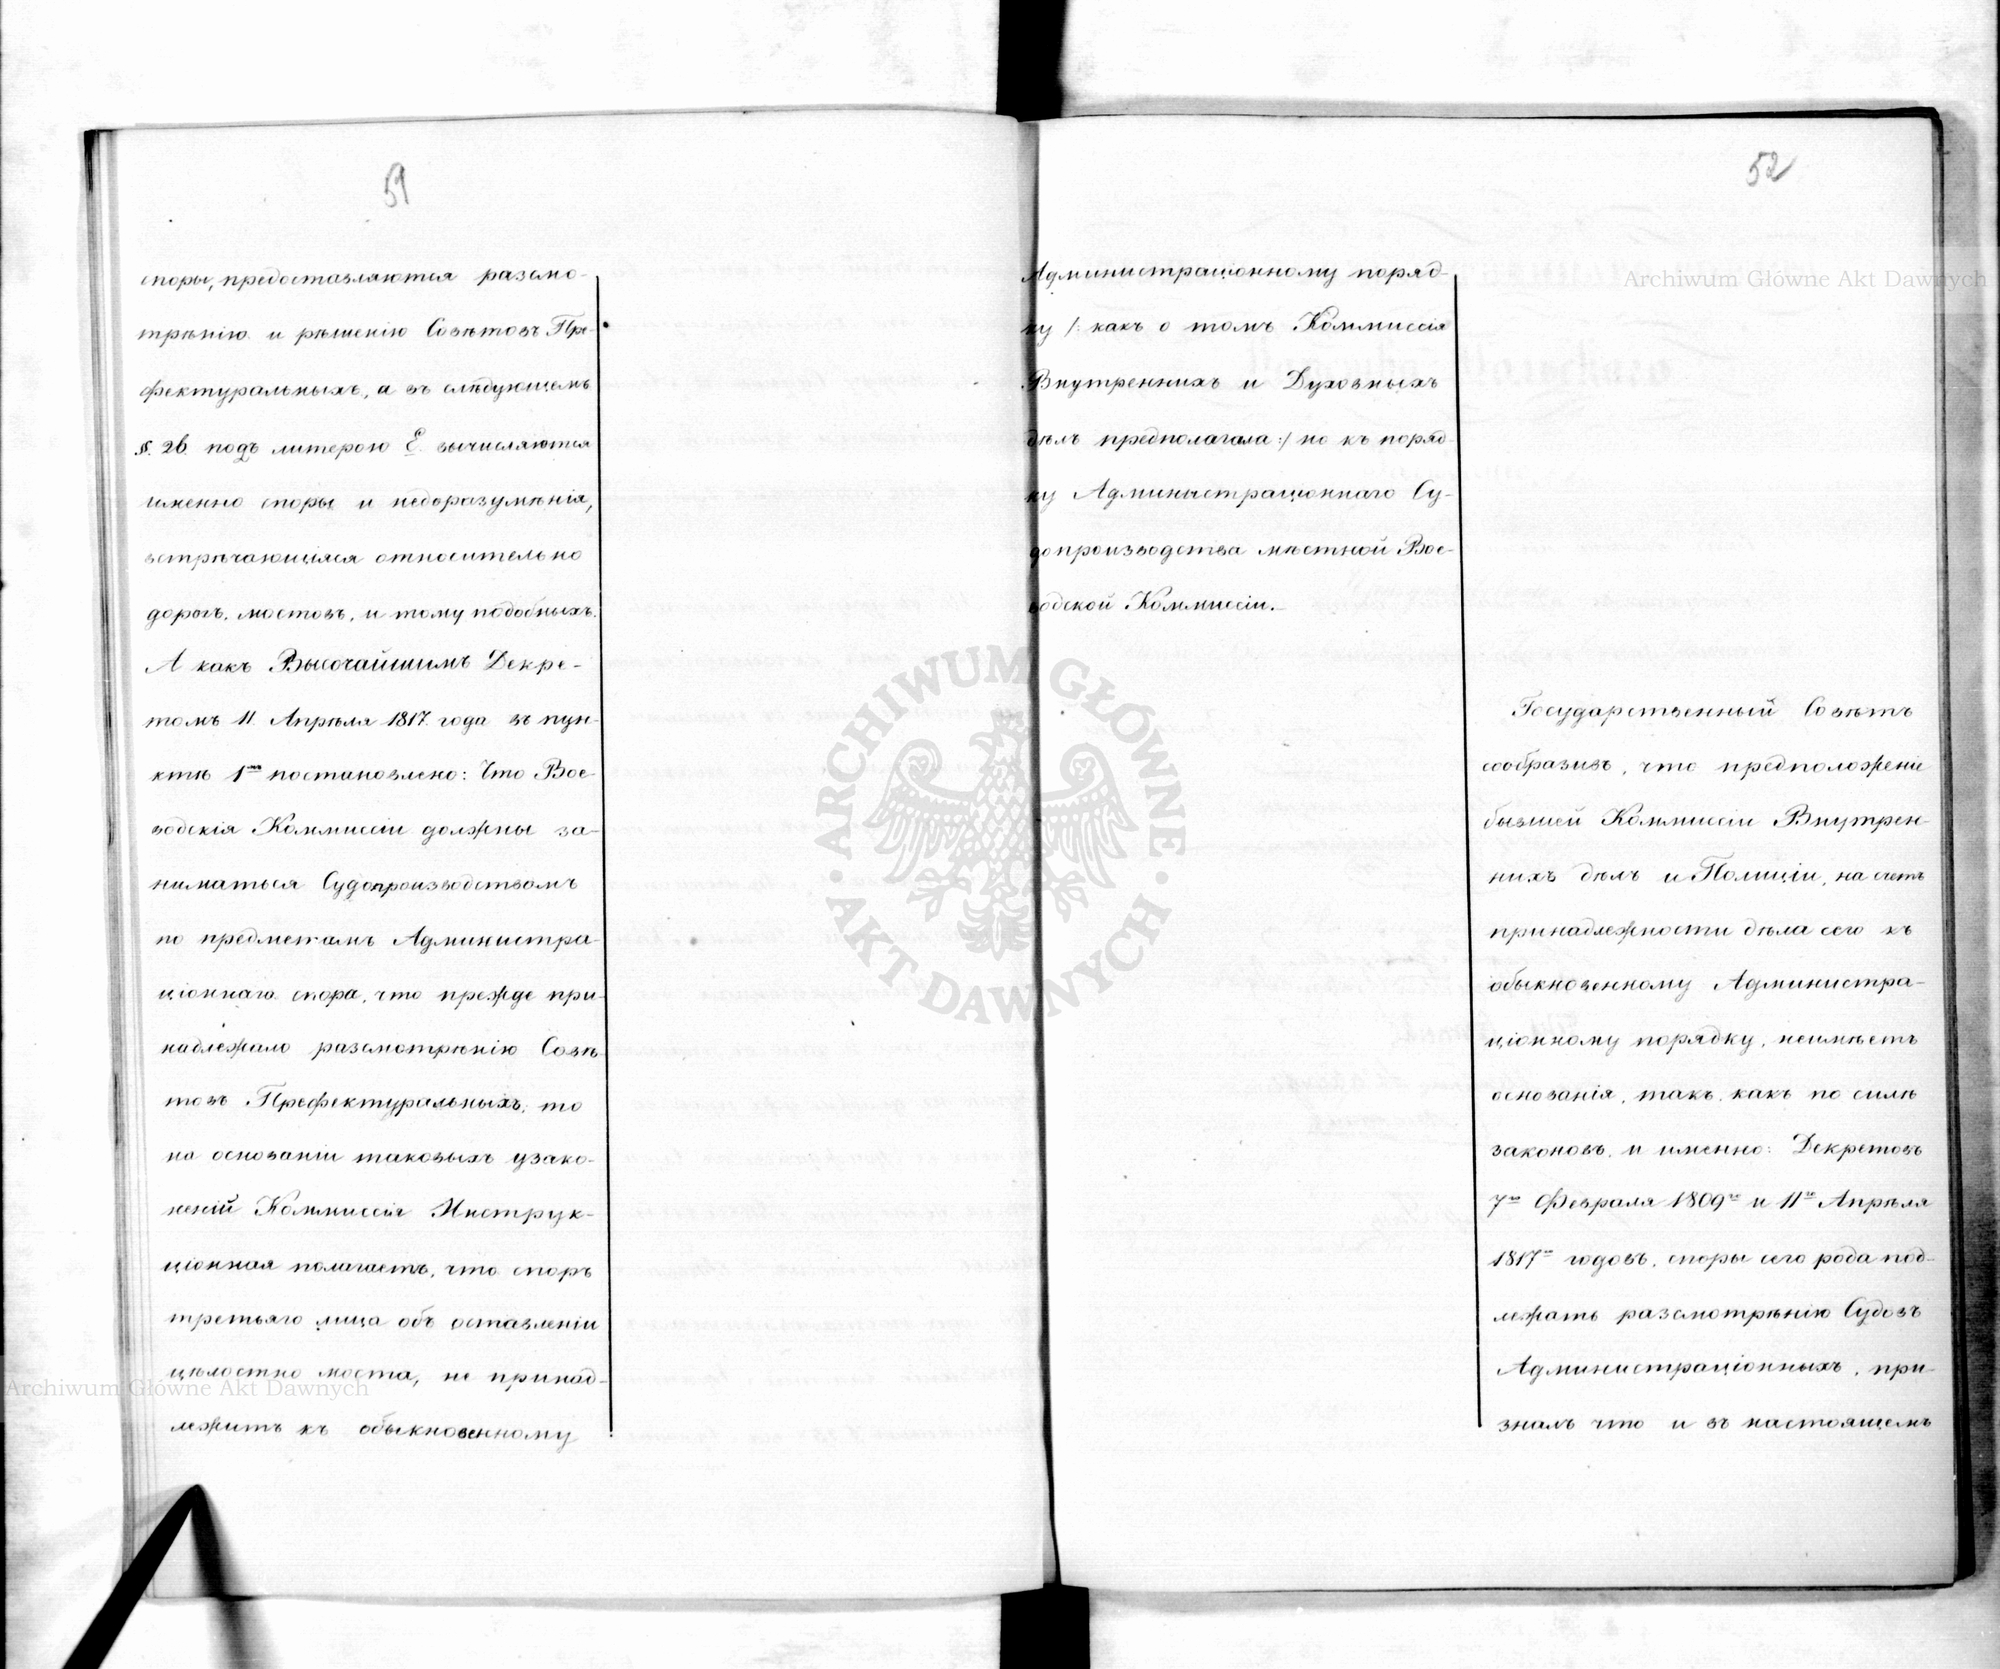 51
споры, предоставляются разсмо-
трѣнію и рѣшенію Совѣтовъ Пре-
фектуральныхъ, а въ слѣдующемъ
§. 26. подъ литерою E. вычисляются
именно споры и недоразумѣнія,
встрѣчающіяся относительно
дорогъ, мостовъ, и тому подобныхъ.
А какъ Высочайшимъ Декре-
томъ 11. Апрѣля 1817 года въ пун-
ктѣ 1мъ постановлено: Что Вое-
водскія Коммиссіи должны за-
ниматься Судопроизводствомъ
по предметамъ Администра-
ціоннаго спора, что прежде при-
надлежало разсмотрѣнію Совѣ-
товъ Префектуральныхъ; то
на основаніи таковыхъ узако-
неній Коммиссія Инструк-
ціонная полагаетъ, что споръ
третьяго лица объ оставленіи
цѣлостно моста, не принад-
лежитъ къ обыкновенному
52
Административному поряд-
ку /: какъ о томъ Коммиссія
Внутреннихъ и Духовныхъ
дѣлъ предполагала :/ но къ поряд-
ку Администраціоннаго Су-
допроизводства мѣстной Вое-
водской Коммиссіи.
Государственный Совѣтъ
сообразивъ, что предположеніе
бывшей Коммиссіи Внутрен-
нихъ дѣлъ и Полиціи, на счетъ
принадлежности дѣла сего къ
обыкновенному Администра-
ціонному порядку, неимѣетъ
основанія, такъ какъ по силѣ
законовъ и именно: Декретовъ
7го Февраля 1809го и 11го Апрѣля
1817го годовъ, споры сего рода под-
лежатъ разсмотрѣнію Судовъ
Администраціонныхъ, при-
зналъ что и въ настоящемъ
Archiwum Główne Akt Dawnych
Archiwum Główne Akt Dawnych
ARCHIWUM GŁÓWNE
AKT DAWNYCH